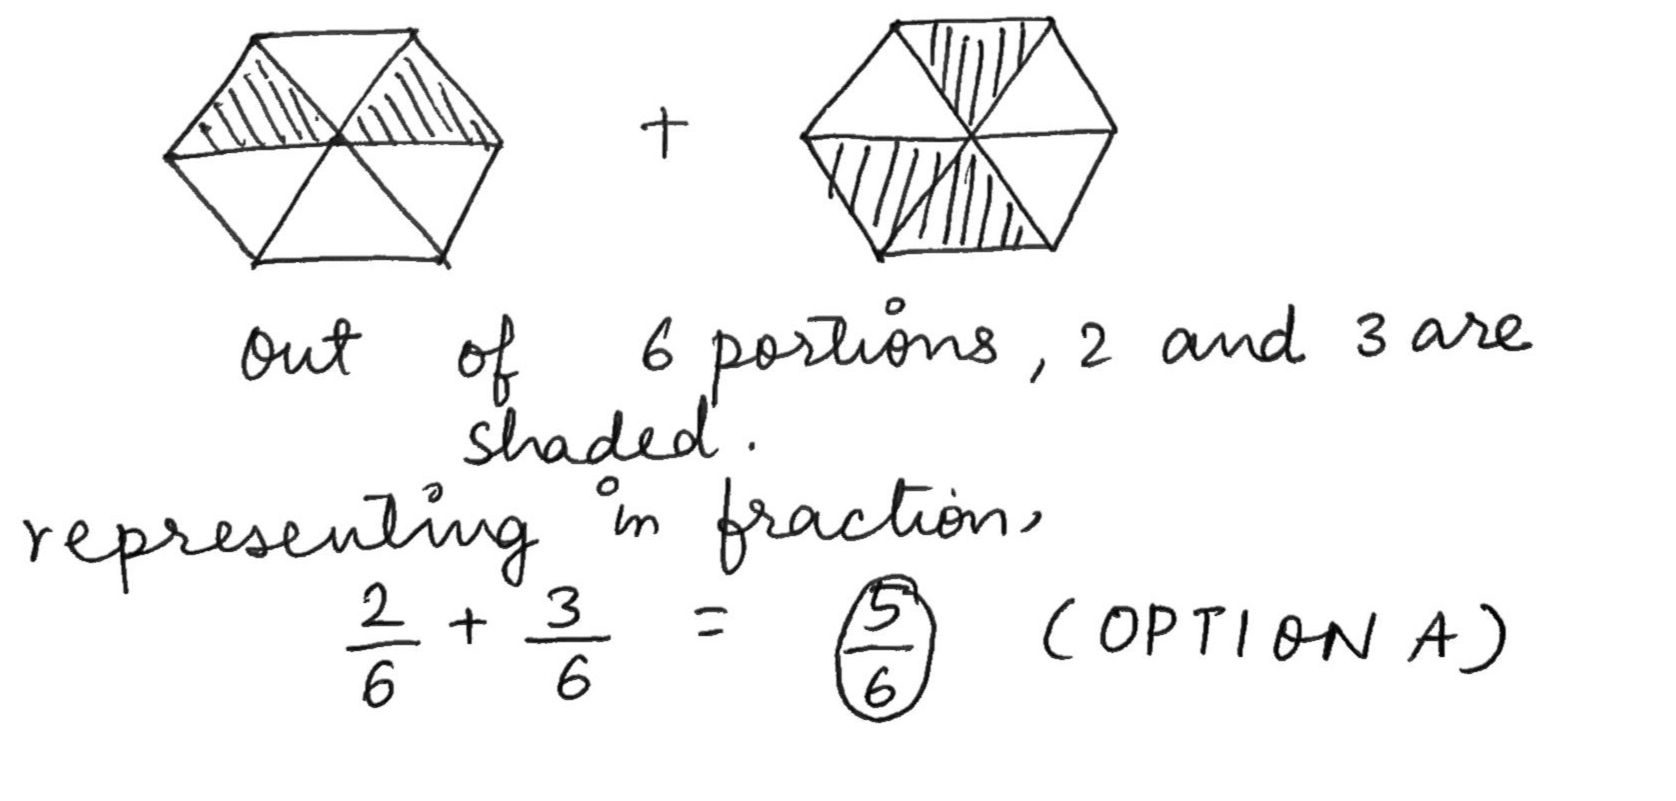 +
out of 6 portions, 2 and 3 are
shaded.
representing in fraction,
2/6 + 3/6 = 5/6 (OPTION A)